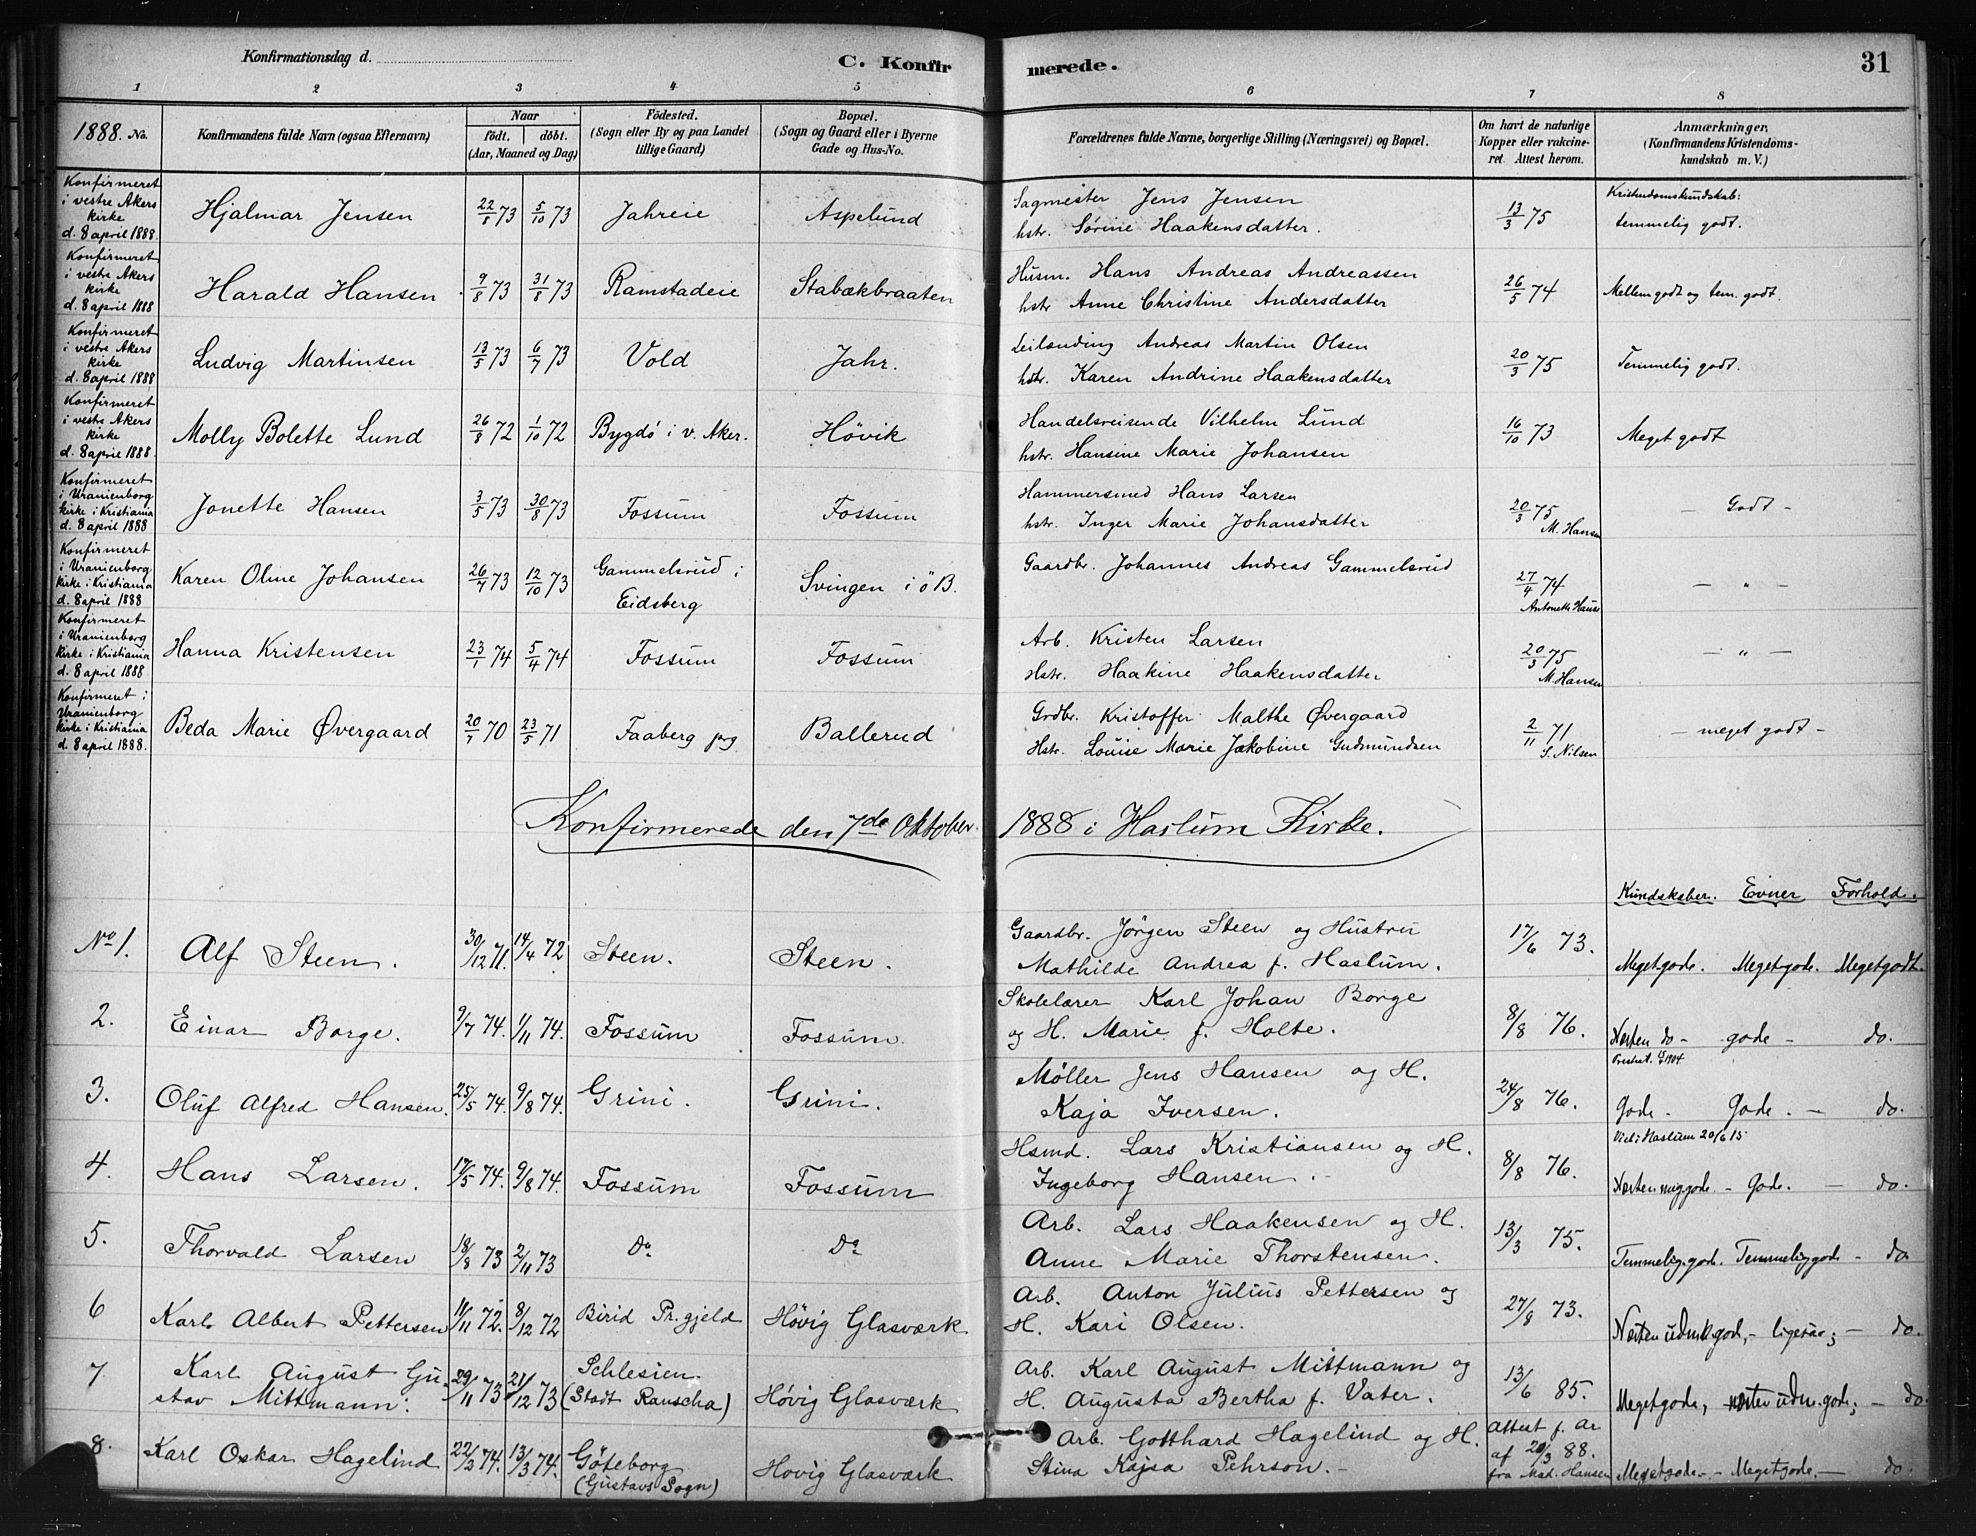 Konfirmationsdag d.
C. Konfirmerede.
31
1 2 3 4 5 6 7 8
1888. No.
Konfirmandens fulde Navn (ogsaa Efternavn)
Naar
födt. döbt.
(Aar, Maaned og Dag)
Födested.
(Sogn eller By og paa Landet
tillige Gaard)
Bopæl.
(Sogn og Gaard eller i Byerne
Gade og Hus-No.
Forældrenes fulde Navne, borgerlige Stilling (Næringsvei) og Bopæl.
Om havt de naturlige
Kopper eller vakcine-
ret. Attest herom.
Anmærkninger,
(Konfirmandens Kristendoms-
kundskab m. V.)
Konfirmeret
i vestre Akers
kirke
d. 8 april 1888.
Hjalmar Jensen
22/8 73 5/10 73 Jahreie Aspelund
Sagmester Jens Jensen
hstr. Sørine Haakensdatter.
13/3 75
Kristendomskundskab:
temmelig godt.
Konfirmeret
i vestre Akers
kirke
d. 8 april 1888
Harald Hansen
9/8 73 31/8 73 Ramstadeie Stabækbraaten
Husm. Hans Andreas Andreassen
hstr Anne Christine Andersdatter
26/5 74
Mellem godt og tem. godt.
Konfirmeret
i vestre Akers
kirke
d. 8 april 1888
Ludvig Martinsen
13/5 73 6/7 73 Vold Jahr.
Leilænding Andreas Martin Olsen
hstr. Karen Andrine Haakensdatter
20/3 75
Temmelig godt.
Konfirmeret
i vestre Akers
kirke
d. 8 april 1888
Molly Bolette Lund
26/8 72 1/10 72 Bygdö i v. Aker. Hövik
Handelsreisende Vilhelm Lund
hstr. Hansine Marie Johansen
16/10 73
Meget godt
Konfirmeret
i Uranienborg
kirke i Kristiania
d. 8 april 1888
Jonette Hansen
3/5 73 30/8 73 Fossum Fossum
Hammersmed Hans Larsen
hstr. Inger Marie Johansdatter
20/3 75
M. Hansen
- Godt -
Konfirmeret
i Uranienborg
kirke i Kristiania
d. 8 april 1888
Karen Oline Johansen
26/7 73 12/10 73 Gammelsrud i
Eidsberg
Svingen i ö B.
Gaardbr. Johannes Andreas Gammelsrud
27/4 74
- " -
Konfirmeret
i Uranienborg
kirke i Kristiania
d. 8 april 1888
Hanna Kristensen
23/1 74 5/4 74 Fossum Fossum
Arb. Kristen Larsen
Hstr. Haakine Haakensdatter
20/3 75
M. Hansen
- " -
Konfirmeret i
Uranienborg
kirke i Kristiania
d. 8 april 1888.
Beda Marie Øvergaard
20/7 70 23/5 71 Faaberg prg Ballerud
Grdbr. Kristoffer Malthe Øvergaard
Hstr. Louise Marie Jakobine Gudmundsen
2/11 71
S. Nilsen
- meget godt -
Konfirmerede den 7de Oktober 1888 i Haslum Kirke.
Kundskaber. Evner Forhold.
No 1. Alf Steen. 30/12 71. 14/4 72 Steen. Steen.
Gaardbr. Jörgen Steen og Hustru
Mathilde Andrea f. Haslum.
17/6 73.
Meget gode. Meget gode. Meget godt.
2. Einar Borge. 9/7 74. 1/11 74. Fossum Fossum.
Skolelærer Karl Johan Borge
og H. Marie f. Holte.
8/8 76.
Næsten do - gode - do.
3. Oluf Alfred Hansen. 25/5 74. 9/8 74. Grini. Grini.
Møller Jens Hansen og H.
Kaja Iversen.
24/8 76.
Gode - Gode. - do.
4. Hans Larsen. 17/5 74. 9/8 74. Fossum Fossum
Hsmd. Lars Kristiansen og H.
Ingeborg Hansen.
8/8 76.
Viet i Haslum 20/6 15
Næsten meg. gode. - Gode. - do.
5. Thorvald Larsen 18/8 73 2/11 73 Do Do
Arb. Lars Haakensen og H.
Anne Marie Thorstensen.
13/3 75.
Temmelig gode. Temmelig gode - do
6 Karl Albert Pettersen 11/11 72. 8/12 72 Birid Pr. gjeld Høvig Glasværk
Arb. Anton Julius Pettersen og
H. Kari Olsen.
27/8 73.
Næsten udmk. gode, - ligesaa; - do.
7 Karl August Gu-
stav Mittmann.
29/11 73 21/12 73 Schlesien.
(Stadt Rauscha)
Høvig Glasværk
Arb. Karl August Mittmann og
H. Augusta Bertha f. Vater.
13/6 85.
Meget gode, næsten udm. gode; - do.
8. Karl Oskar Hagelind 22/2 74. 13/3 74. Göteborg
(Gustavs Sogn)
Hovig Glasværk
Arb. Gotthard Hagelind og H.
Stina Kajsa Pehrson. -
Attest f. ar
af 20/3 88.
fra Mad. Hansen
Meget gode - - Meget gode. - do.